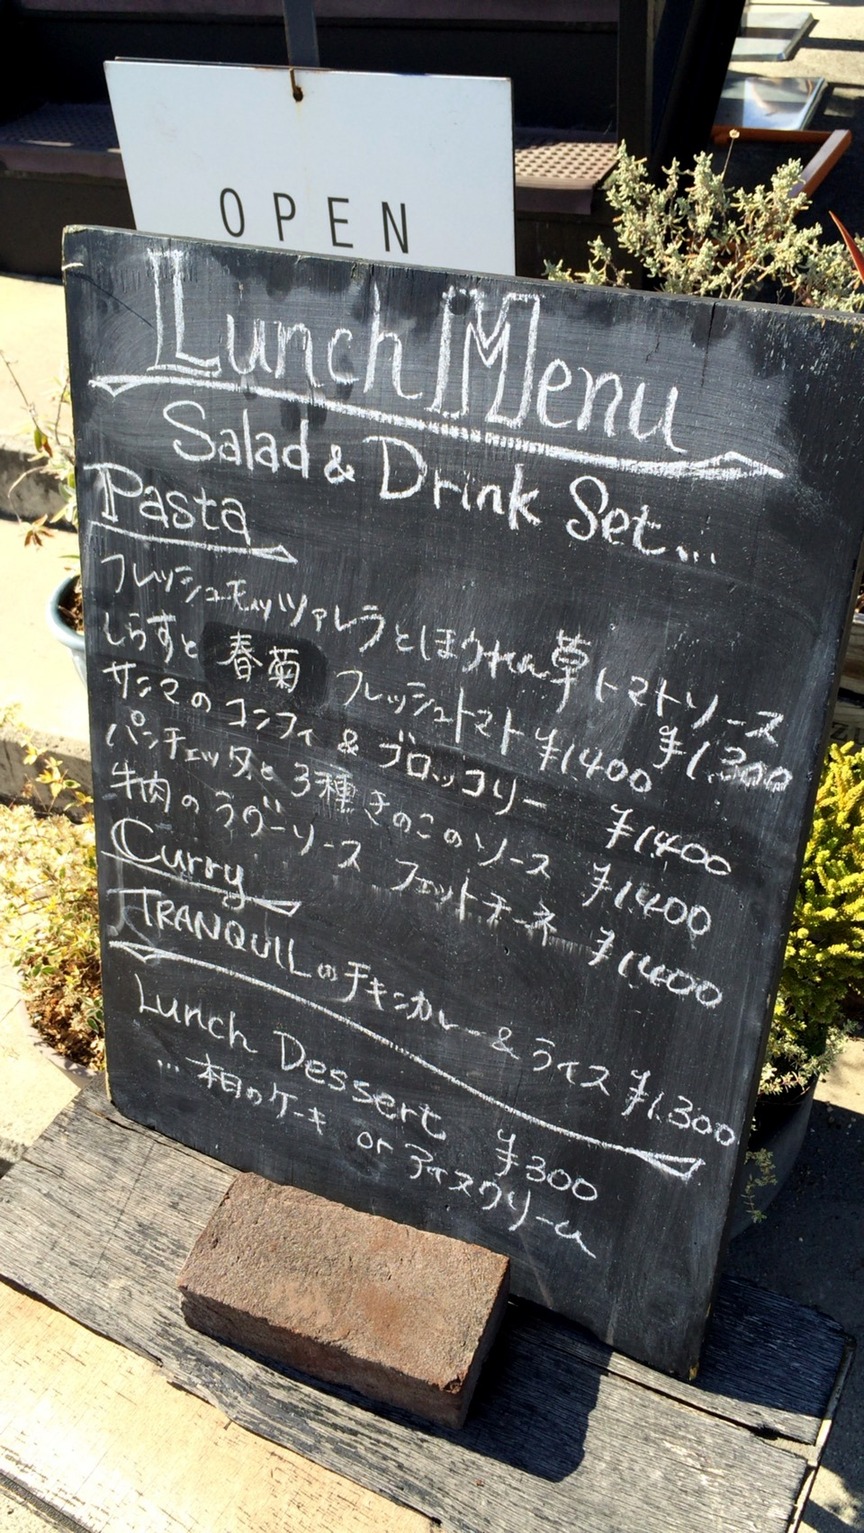 OPEN
Lunch Menu
Salad & Drink Set...
Pasta
フレッシュモッツァレラとほうれん草トマトソース ¥1,300
しらすと春菊 フレッシュトマト ¥1400
サンマのコンフィ & ブロッコリー ¥1,400
パンチェッタと3種きのこのソース ¥1,400
牛肉のラグーソース フェットチーネ ¥1,400
Curry
TRANQUILのチキンカレー & ライス ¥1,300
Lunch Dessert ¥300
... 本日のケーキ or アイスクリーム